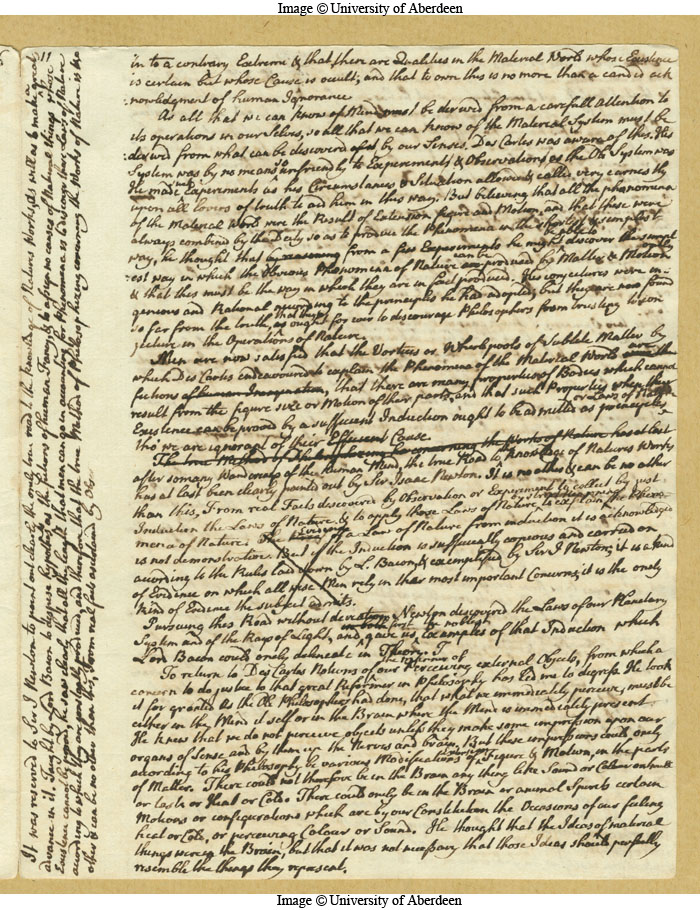 Image © University of Aberdeen
11
in to a contrary Extreme & that there are Qualities in the Material World whose Existence
is certain but whose Cause is occult; and that to own this is no more than a candid ack
nowledgment of human Ignorance
As all that we can know of Mind must be derived from a carefull Attention to
its operations in our Selves, so all that we can know of the Material System must be
derived from what can be discovered of it by our Senses. Des Cartes was aware of this. His
System was by no means so unfriendly to Experiments & Observations as the Old System was
He made Experiments as his Circumstances & Situation allowed, & calls very earnestly
upon all lovers of truth to aid him in this way. But believing that all the phænomena
of the Material World were the Result of Extension figure and Motion, and that these were
always combind by the Deity so as to produce the Phenomena in the shortest & simplest
way, he thought that by reasoning from a few Experiments he might be able to discover the
est way in which the Obvious Phenomena of Nature can be produced by Matter & Motion only
& that this must be the way in which they are in fact produced. His conjectures were in-
genious and Rational according to the principles he had adopted, but they are now found
so far from the truth, that they ought for ever to discourage Philosophers from trusting to con
jecture in the Operations of Nature.
Men are now satisfied that the Vortices or Whirlpools of Subtile Matter by
which Des Cartes endeavoured to explain the Phenomena of the Material World are
fictions of human Imagination, that there are many properties of Bodies which cannot
result from the figure size or Motion of their parts, and that such Properties when their
or Laws of Nature
Existence can be proved by a sufficient Induction ought to be admitted as principles
tho' we are ignorant of their Efficient Cause.
The true Method of Philosophizing concerning the Works of Nature has at last
after so many Wanderings of the human Mind, the true Road to Knowledge of Natures Works
has at last been clearly pointed out by Sir Isaac Newton. It is no other & can be no other
than this, From real Facts discovered by Observation or Experiment to collect by just
Induction the Laws of Nature & to apply those Laws of Nature to explain the Pheno
mena of Nature. The Evidence of a Law of Nature from induction it is acknowledged
is not demonstrative. But if the Induction is sufficiently copious and carried on
according to the Rules laid down by L. Bacon, & exemplified by Sir I Newton; it is a kind
of Evidence on which all wise Men rely in their most important Concerns; it is the only
kind of Evidence the subject admits.
Pursuing this Road without deviation Newton discovered the Laws of our Planetary
System and of the Rays of Light, and gave us the noblest Examples of that Induction which
Lord Bacon could onely delineate in Theory.
To return to Des Cartes Notions of our Perceiving external Objects, from which a
concern to do justice to that great Reformer in Philosophy has led me to digress. He took
it for granted As the Old Philosophers had done, that what we immediately perceive, must be
either in the Mind it self or in the Brain where the Mind is immediately present
He knew that we do not perceive objects unless they make some impression upon our
organs of Sense, and by them upon the Nerves and brain, But these impressions could only
according to his Philosophy be various Modifications of Extension Figure & Motion, in the parts
of Matter. There could not therefore be in the Brain any thing like Sound or Colour or Smell
or taste or Heat or Cold. There could only be in the Brain or animal Spirits certain
Motions or configurations which are by our Constitution the Occasions of our feeling
heat or Cold, or perceiving Colour or Sound. He thought that the Ideas of material
things were in the Brain, but that it was not necessary that those Ideas should perfectly
resemble the things they represent.
It was reserved to Sir I Newton to point out clearly the only true road to the knowledge of Natures Works, as well as to make a great
advance in it. Taught by Lord Bacon to despise hypotheses as the fictions of human Fancy, & to assign no causes of Natural things whose
Existence cannot be proved, he saw clearly that all the length that men can go in accounting for Phenomena is to discover those Laws of Nature
according to which they are constantly produced, and therefore that the true Method of Philosophizing concerning the Works of Nature is no
other & can be no other than this, From real facts ascertained by Obs-
Image © University of Aberdeen